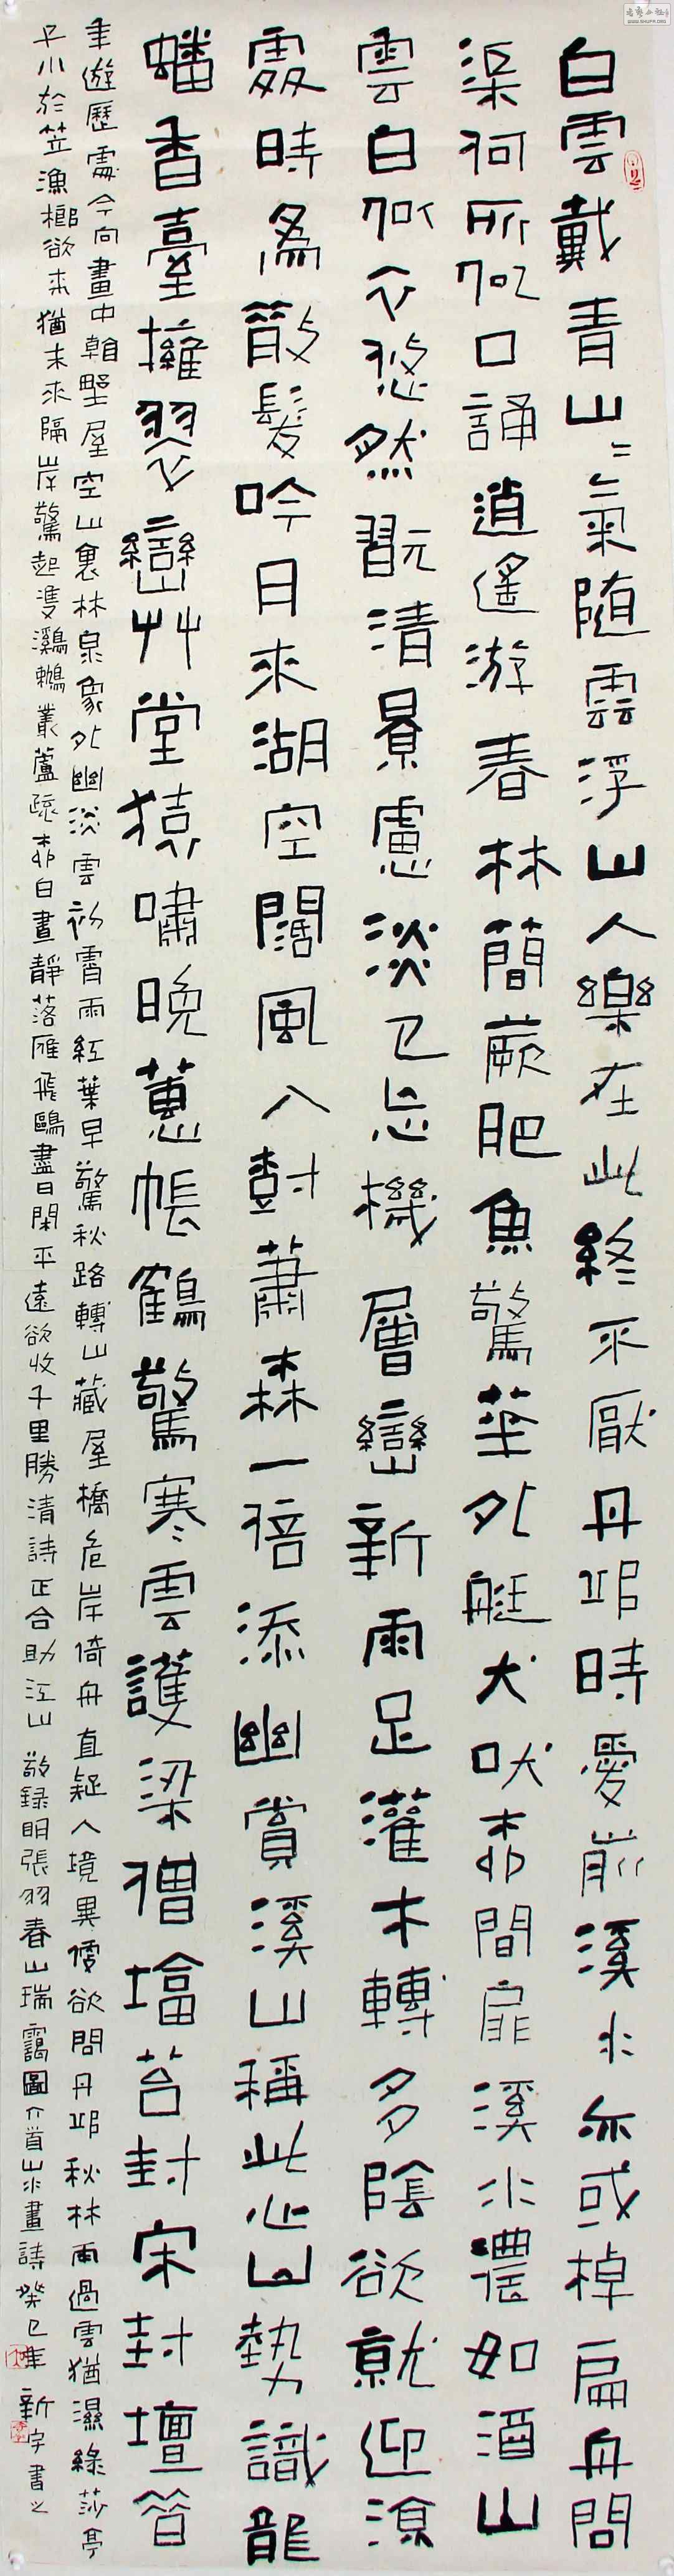 白雲戴青山二氣隨雲浮山人樂在此終不厭丹邱時愛前溪水亦或棹扁舟問
渠何所似口誦逍遙游春林蘭蕨肥魚驚華外艇犬吠柳間扉溪水濃如酒山
雲白似衣悠然翫清景慮淡已忘機層巒新雨足灌木轉多陰欲就迎涼
處時為散髮吟日來湖空闊風入樹蕭森一倍添幽賞溪山稱此心山勢識龍
蟠香臺擁翠巒艸堂猿嘯晚蕙帳鶴驚寒雲護梁僧塔苔封宋封壇
年遊歷處今向畫中看野屋空山裏林泉象外幽淡雲初霽雨紅葉早驚秋路轉山藏屋橋危岸倚舟直疑人境異便欲問丹邱秋林雨過雲猶濕綠莎亭
子小於笠漁榔欲來猶未來隔岸驚起雙鸂鶒叢蘆疏柳白晝靜落雁飛鷗盡日閑平遠欲收千里勝清詩正合助江山 敬錄明張羽春山瑞靄圖六首山水畫詩癸巳年 新宇書之
WWW.SHUFR.ORG